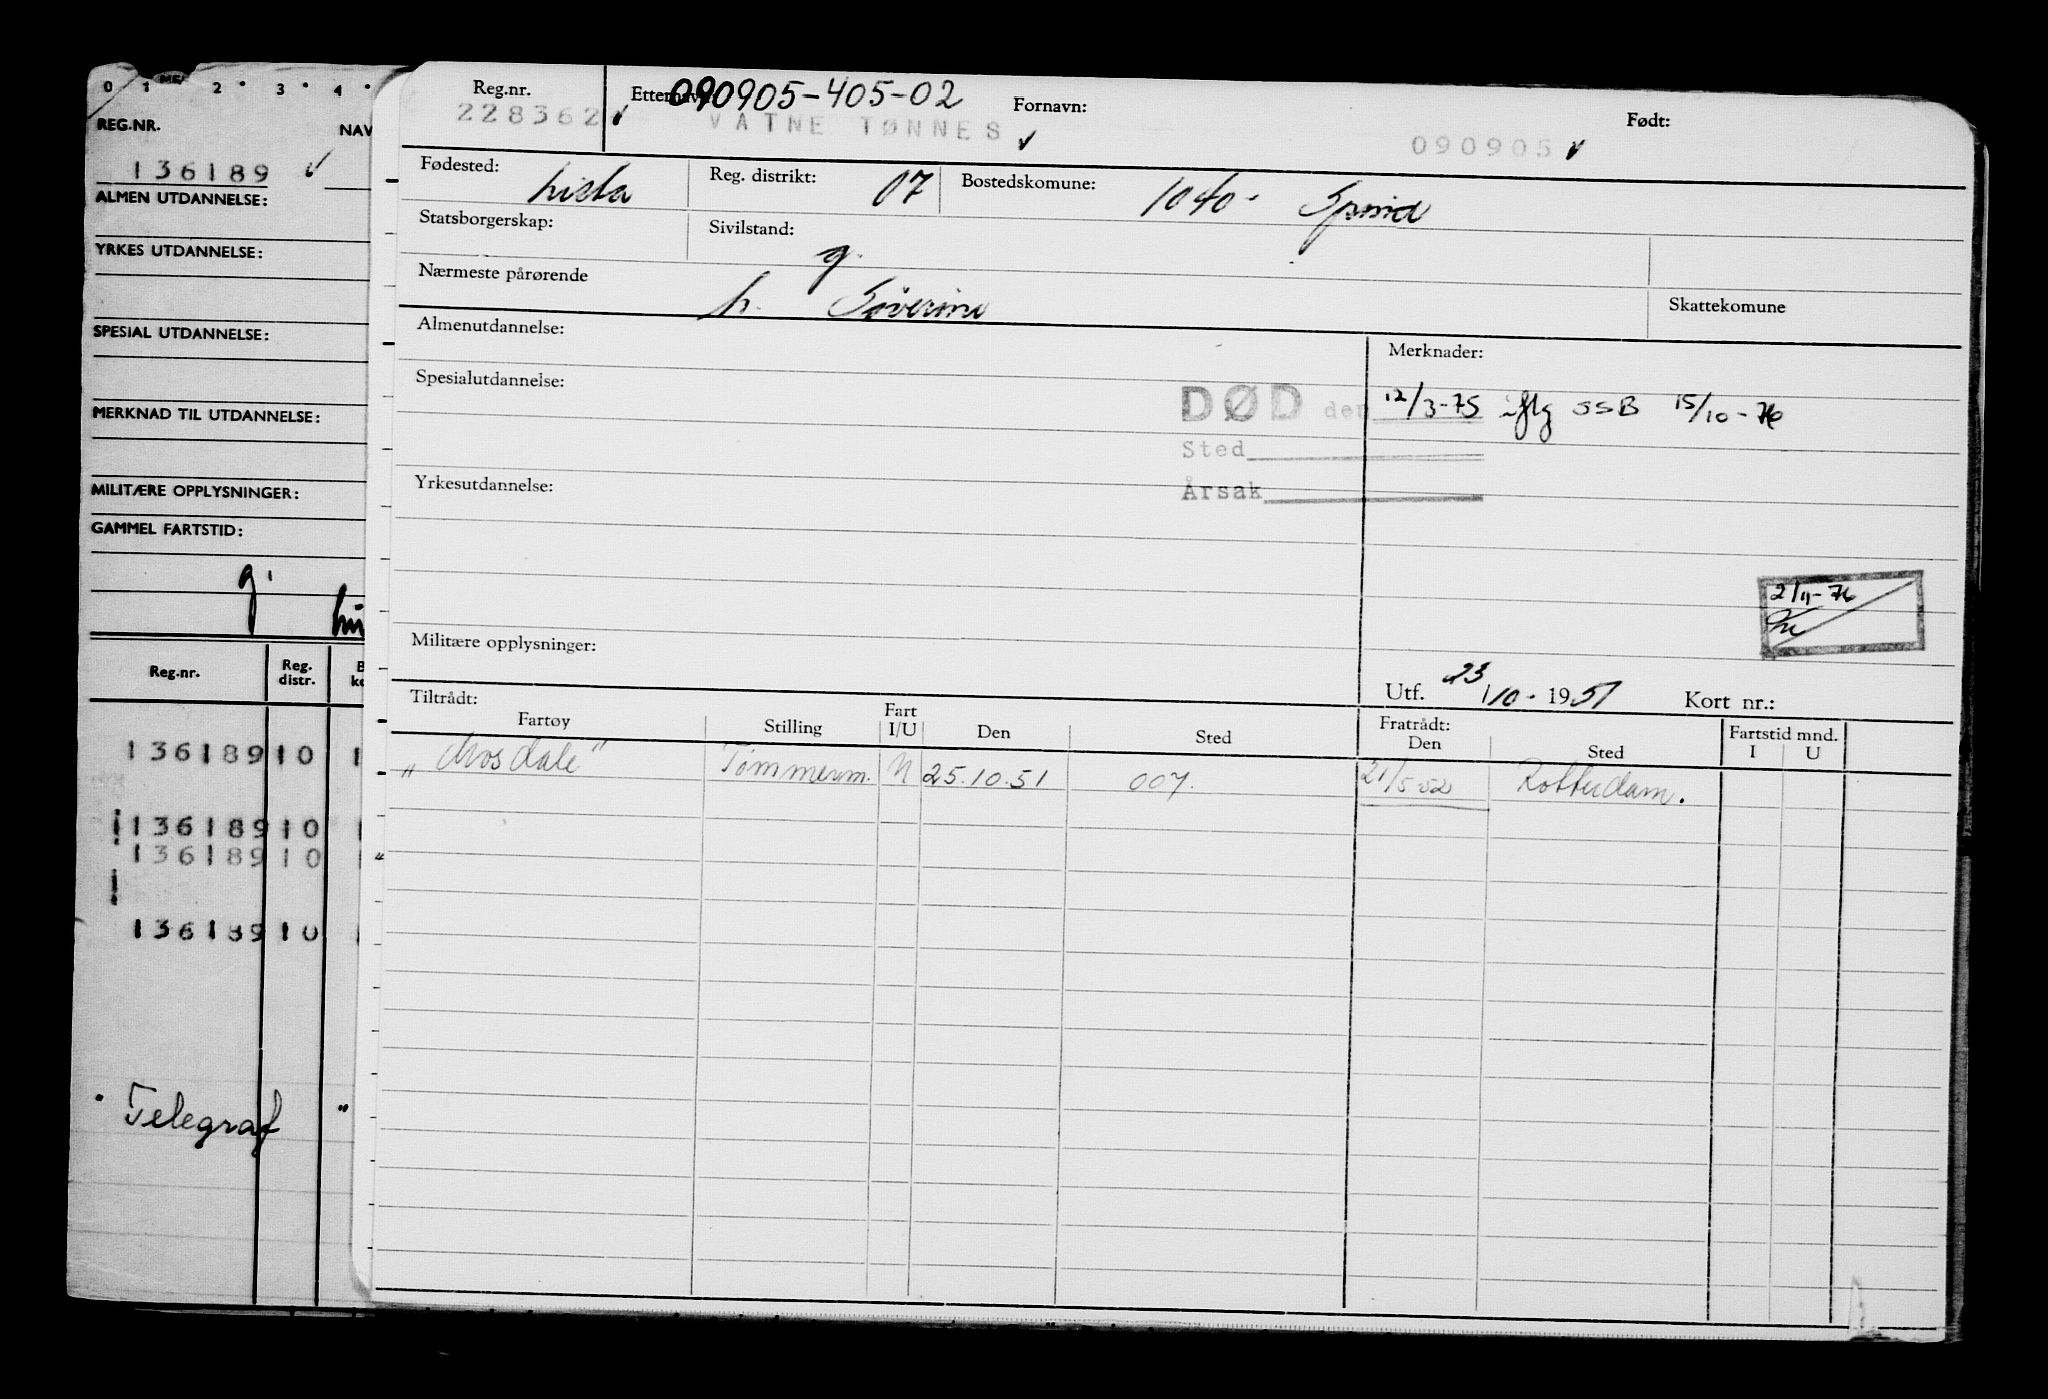 0 1 2 3 4
REG.NR. NAV
136189
ALMEN UTDANNELSE:
YRKES UTDANNELSE:
SPESIAL UTDANNELSE:
MERKNAD TIL UTDANNELSE:
MILITÆRE OPPLYSNINGER:
GAMMEL FARTSTID:
g.
Reg.nr. Reg. distr.
136189 10
136189 10
136189 10
136189 10
Telegraf "
Reg.nr. Etternavn: 090905-405-02 Fornavn: Født:
228362 ✓ VATNE TØNNES ✓ 090905 ✓
Fødested: Lista Reg. distrikt: 07 Bostedskomune: 1040- Spind
Statsborgerskap: Sivilstand: g.
Nærmeste pårørende h. Severine Skattekomune
Almenutdannelse: Merknader:
Spesialutdannelse: DØD den 12/3-75 iflg SSB 15/10-76
Sted
Årsak
Yrkesutdannelse:
2/11-76
Militære opplysninger:
Utf. 23/10-1951 Kort nr.:
Tiltrådt: Fratrådt: Fartstid mnd.
Fartøy Stilling Fart I/U Den Sted Den Sted I U
"Mosdale" Tømmerm. N 25.10.51 007. 21/5-52 Rotterdam.